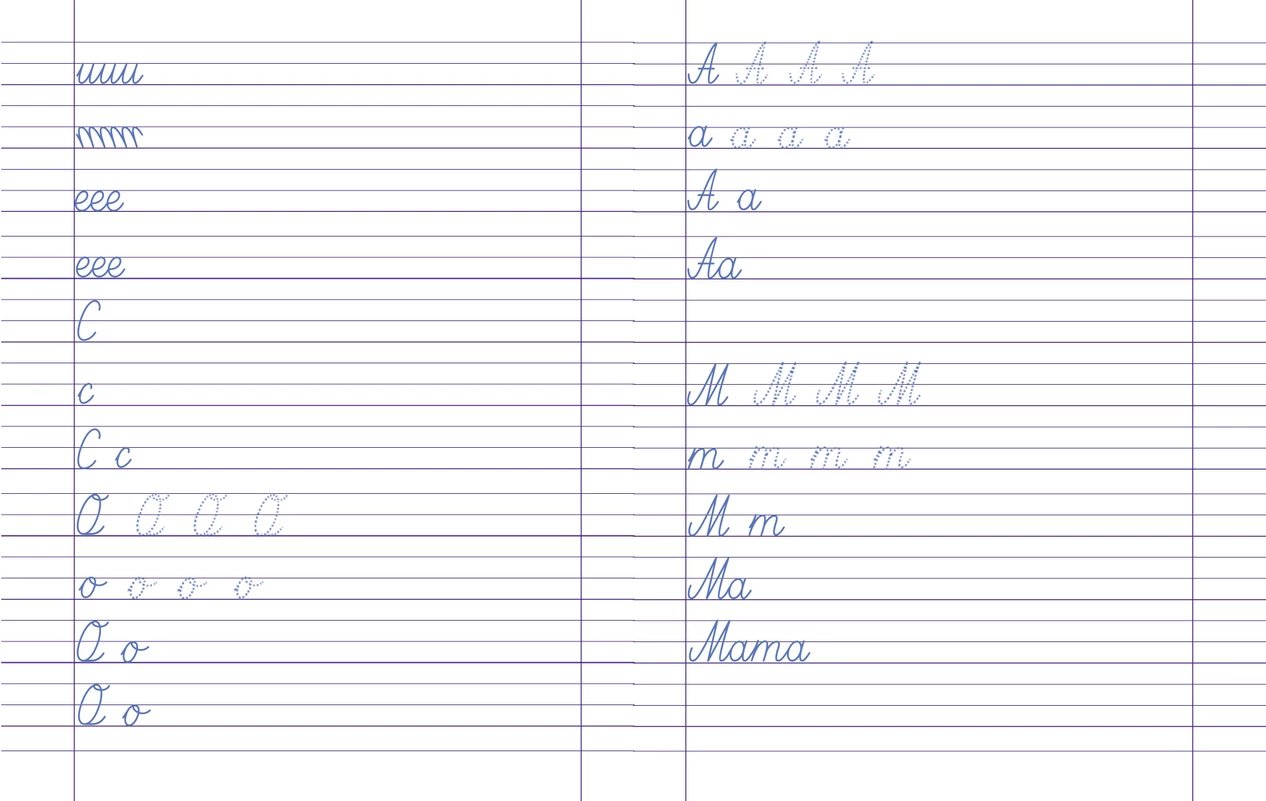 uuu
mmm
eee
eee
C
c
C c
O O O O
o o o o
O o
O o
A A A A
a a a a
A a
Aa
M M M M
m m m m
M m
Ma
Mama